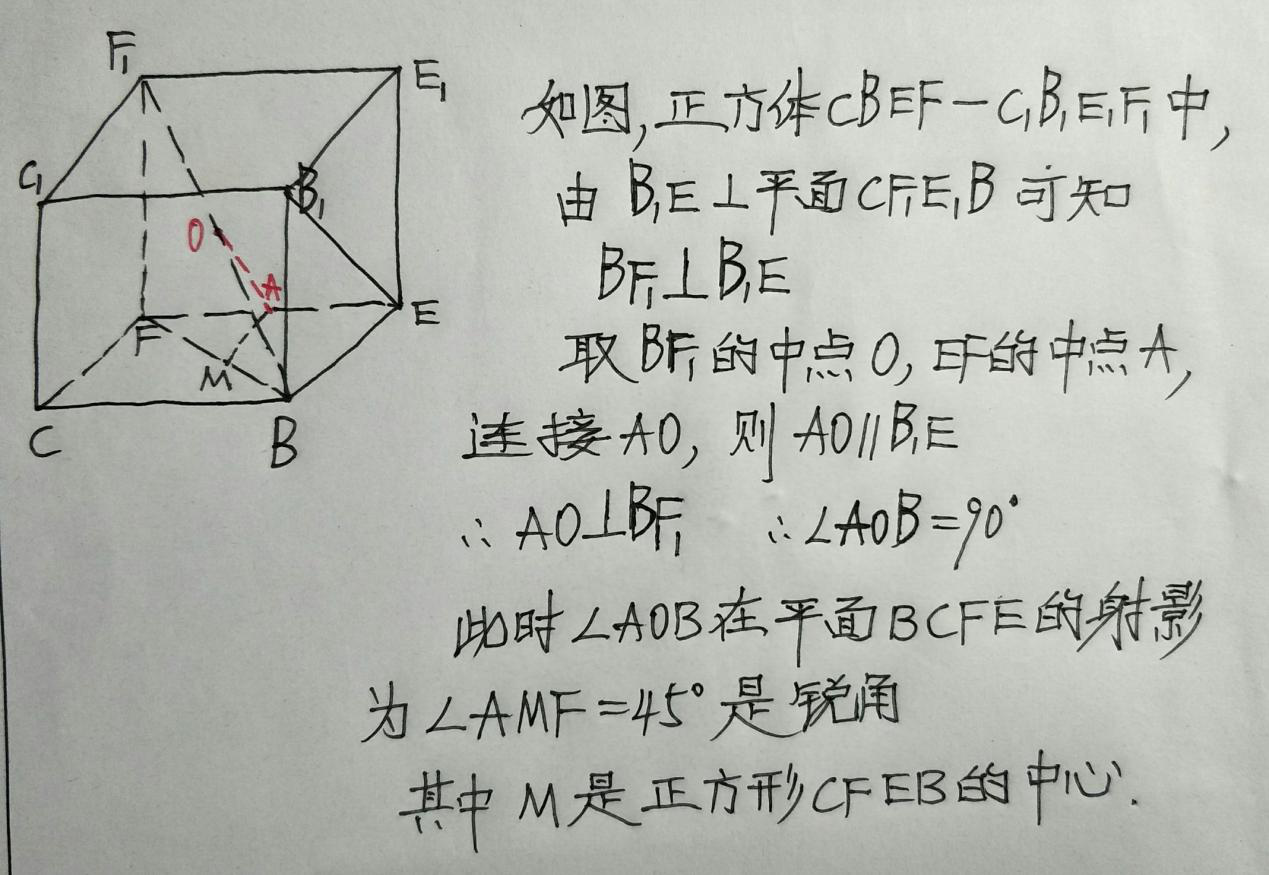 F₁
E₁
C₁
B₁
O
A
F
E
M
C
B
如图,正方体CBEF-C₁B₁E₁F₁中,
由 B₁E⊥平面CF₁E₁B 可知
BF₁⊥B₁E
取BF₁的中点O,EF的中点A,
连接AO,则 AO∥B₁E
∴ AO⊥BF₁ ∴∠AOB=90°
此时∠AOB在平面BCFE的射影
为∠AMF=45°是锐角
其中M是正方形CFEB的中心.